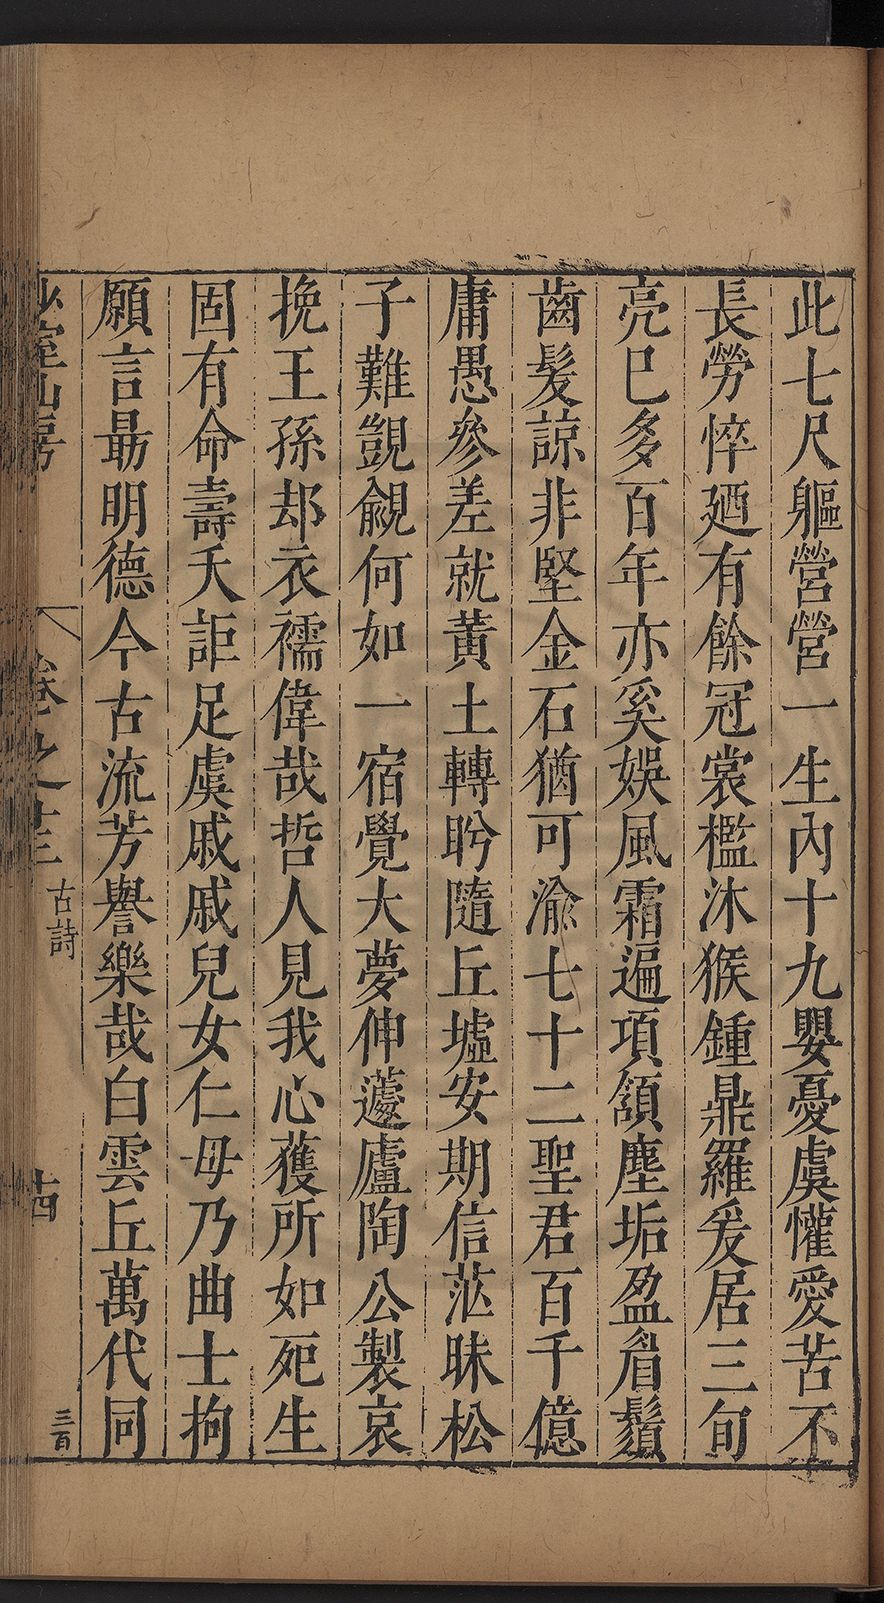 此七尺軀營營一生內十九嬰憂虞懽愛苦不
長勞悴廼有餘冠裳檻沐猴鍾鼎羅爰居三旬
亮巳多百年亦奚娛風霜遍項頷塵垢盈眉鬚
齒髮諒非堅金石猶可渝七十二聖君百千億
庸愚參差就黃土轉盻隨丘墟安期信茫昧松
子難覬覦何如一宿覺大夢伸蘧廬陶公製哀
挽王孫却衣襦偉哉哲人見我心獲所如死生
固有命壽夭詎足虞戚戚兒女仁毋乃曲士拘
願言朂明德今古流芳譽樂哉白雲丘萬代同
室山房
卷之
古詩
三百